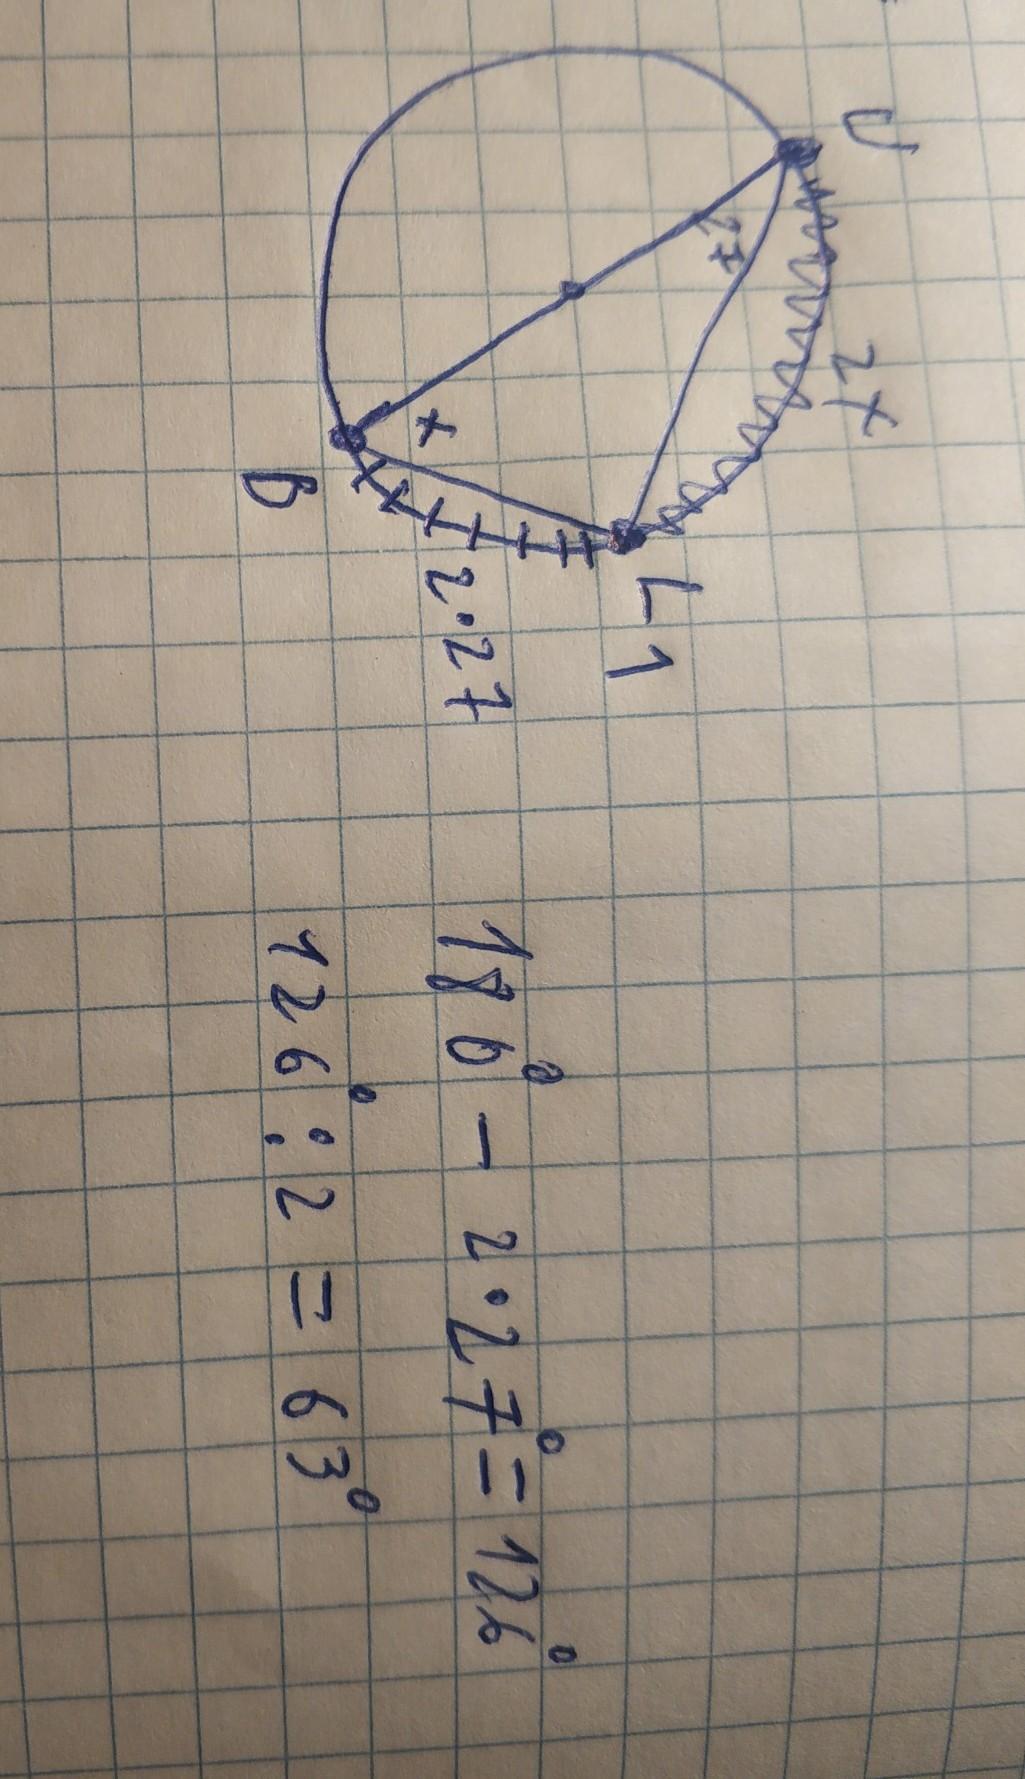 U
27
2x
x
B
L 1
2·27
180° - 2·27° = 126°
126° : 2 = 63°